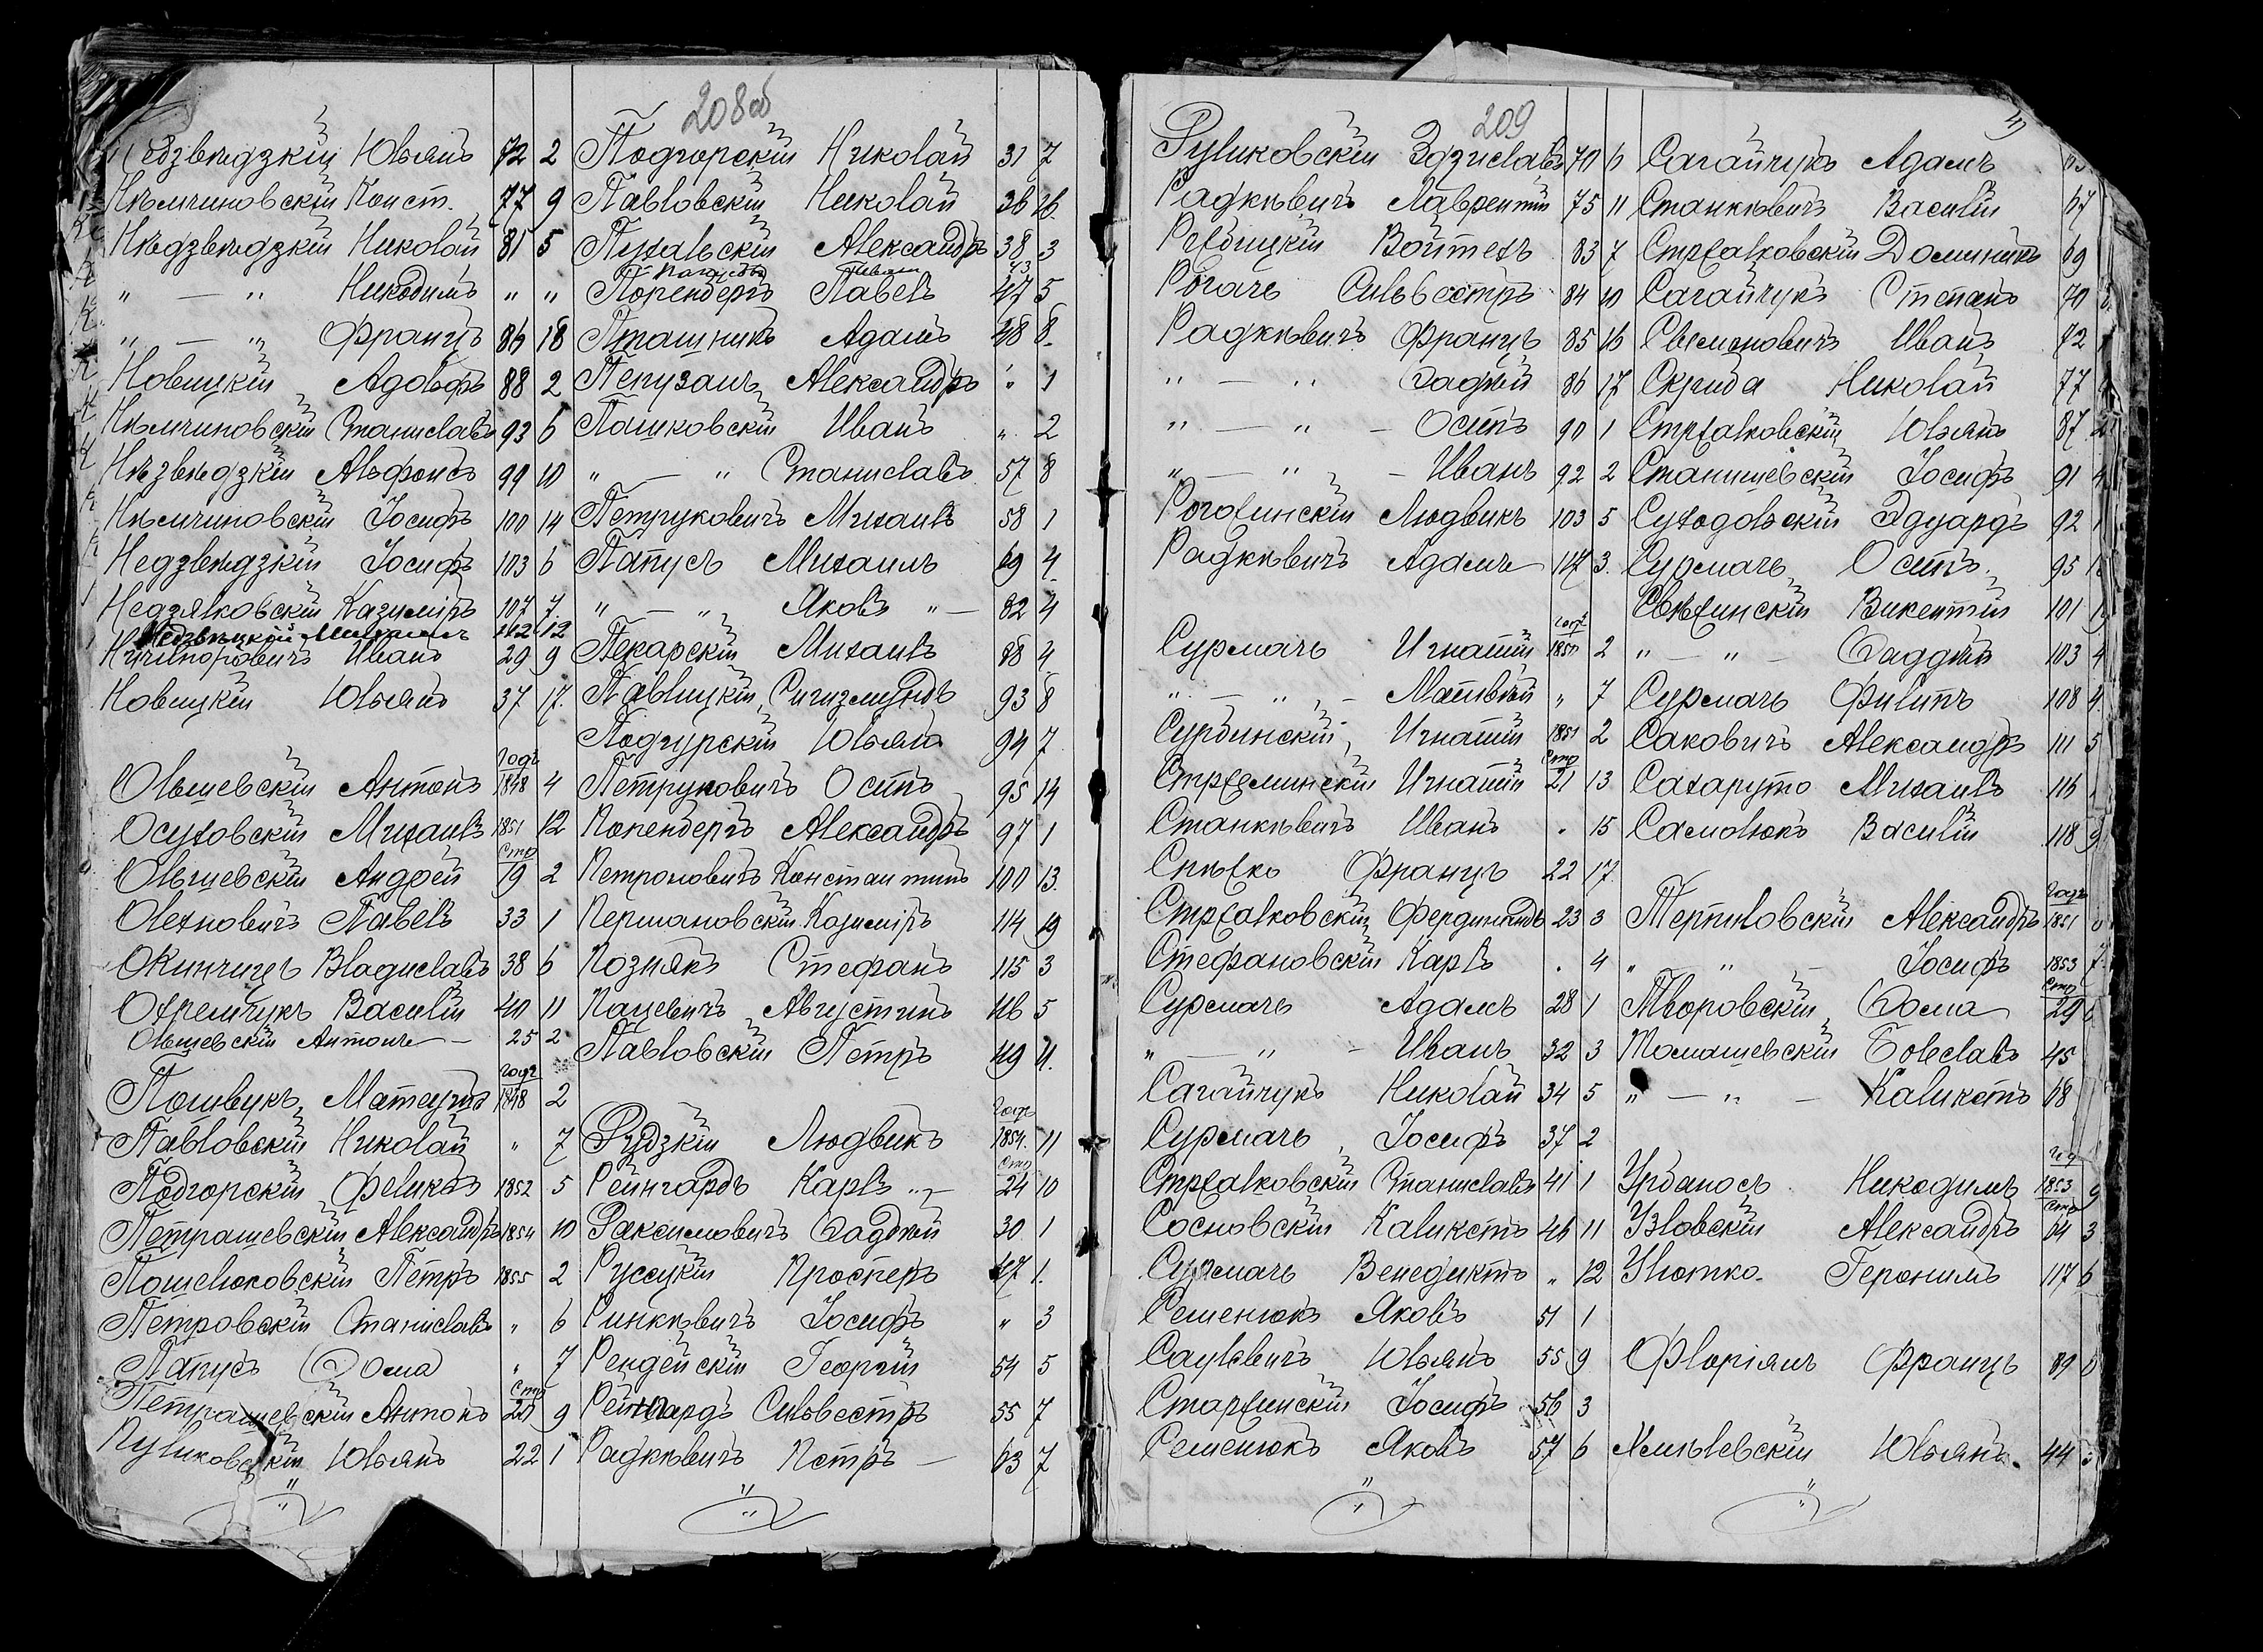 208об
Недзвѣдзкій Юльянъ 72 2
Нѣмчиновскій Конст. 77 9
Нѣдзвѣдзкій Николай 81 5
" — " Никодимъ " "
" — " Францъ 86 18
Новицкій Адольфъ 88 2
Нѣмчиновскій Станиславъ 93 6
Нѣзвѣдзкій Альфонсъ 99 10
Нѣмчиновскій Іосифъ 100 14
Недзвѣдзкій Іосифъ 103 6
Недзялковскій Казиміръ 107 7
Недзвѣцкій Михаилъ 112 12
Ничипоровичъ Иванъ 29 9
Новицкій Юльянъ 37 17.
Годъ
Ольшевскій Антонъ 1848 4
Осуховскій Михаилъ 1851 12
Стр
Ольшевскій Андрей 19 2
Олехновичъ Павелъ 33 1
Окинчицъ Владиславъ 38 6
Охремчукъ Василій 40 11
Ольшевскій Антонъ — 25 2
Годъ
Пошвукъ Матеушъ 1848 2
Павловскій Николай " 7
Подгорскій Феликсъ 1852 5
Петрашевскій Александръ 1854 10
Пошелюковскій Петръ 1855 2
Петровскій Станиславъ " 6
Папусъ Ѳома " 7
Стр
Петрашевскій Антонъ 20 9
Пуликовскій Юльянъ 22 1
Подгорскій Николай 31 7
Павловскій Николай 36 26.
Пухальскій Александръ 38 3
Папусъ Иванъ 43
Порендергъ Павелъ 47 5
Пташникъ Адамъ 48 8.
Пепузанъ Александръ " 1
Пашковскій Иванъ " 2
" — " Станиславъ 57 8
Петруковичъ Михаилъ 58 1
Папусъ Михаилъ 69 4.
" — " Яковъ " — 82 4
Пекарскій Михаилъ 88 4
Павлицкій Сигизмундъ 93 8
Подгурскій Юльянъ 94 7
Петруковичъ Осипъ 95 14
Порендергъ Александръ 97 1
Петроновичъ Константинъ 100 13.
Першановскій Казиміръ 114 19
Познякъ Стефанъ 115 3
Пацевичъ Августинъ 116 5
Павловскій Петръ 119 11.
Годъ
Рудзкій Людвикъ 1854. 11
Стр
Рейнгардъ Карлъ " — 24 10
Раксимовичъ Ѳаддей 30 1
Руссукій Просперъ 47 1.
Ринкѣвичъ Іосифъ " 3
Рендейскій Георгій 54 5
Рейнгардъ Сильвестръ 55 7
Радкѣвичъ Петръ — 63 7
209
Руликовскій Здзиславъ 70 6
Радкѣвичъ Лаврентій 75 11
Рембицкій Войтехъ 83 7
Рогачъ Сильвестръ 84 10
Радкѣвичъ Францъ 85 16
" — " Ѳадѣй 86 17
" — " — Осипъ 90 1
" — " — Иванъ 92 2
Роголинскій Людвикъ 103 5
Радкѣвичъ Адамъ 117 3.
Годъ
Сурмачъ Игнатій 1850 2
" — " — Матвѣй " 7
Сурбинскій Игнатій 1851 2
Стр
Стрелминскій Игнатій 21 13
Станкѣвичъ Иванъ " 15
Снѣжко Францъ 22 17.
Стрѣлковскій Фердинандъ 23 3
Стефановскій Карлъ . 4
Сурмачъ Адамъ 28 1
" — " — Иванъ 32 3
Сагайчукъ Николай 34 5
Сурмачъ Іосифъ 37 2
Стрѣлковскій Станиславъ 41 1
Сосновскій Каликстъ 46 11
Сурмачъ Венедиктъ " 12
Семенюкъ Яковъ 51 1
Саулевичъ Юльянъ 55 9
Старжинскій Іосифъ 56 3
Семенюкъ Яковъ 57 6
Сагайчукъ Адамъ
Станкѣвичъ Василій 67
Стрѣлковскій Доминикъ 69
Сагайчукъ Степанъ 70
Свѣменовичъ Иванъ 72
Скрида Николай 77
Стрѣлковскій Юльянъ 87
Станишевскій Іосифъ 91 4
Суходольскій Эдуардъ 92 1
Сурмачъ Осипъ 95
Свѣжинскій Викентій 101
" — " — Ѳаддей 103 4
Сурмачъ Филипъ 108 4.
Саковичъ Александръ 111 5
Сахаруто Михаилъ 116
Самолюкъ Василій 118 9
Годъ
Терпиловскій Александръ 1851
" " — Іосифъ 1853 7
Стр
Творовскій Ѳома 29
Томашевскій Болеславъ 45
" — " — Каликстъ 68
Урбаносъ Никодимъ 1853 9
Стр
Узловскій Александръ 64 3
Улютко. Геронимъ 117 6
Флоріянъ Францъ 89
Хмѣлевскій Юльянъ. 44 3